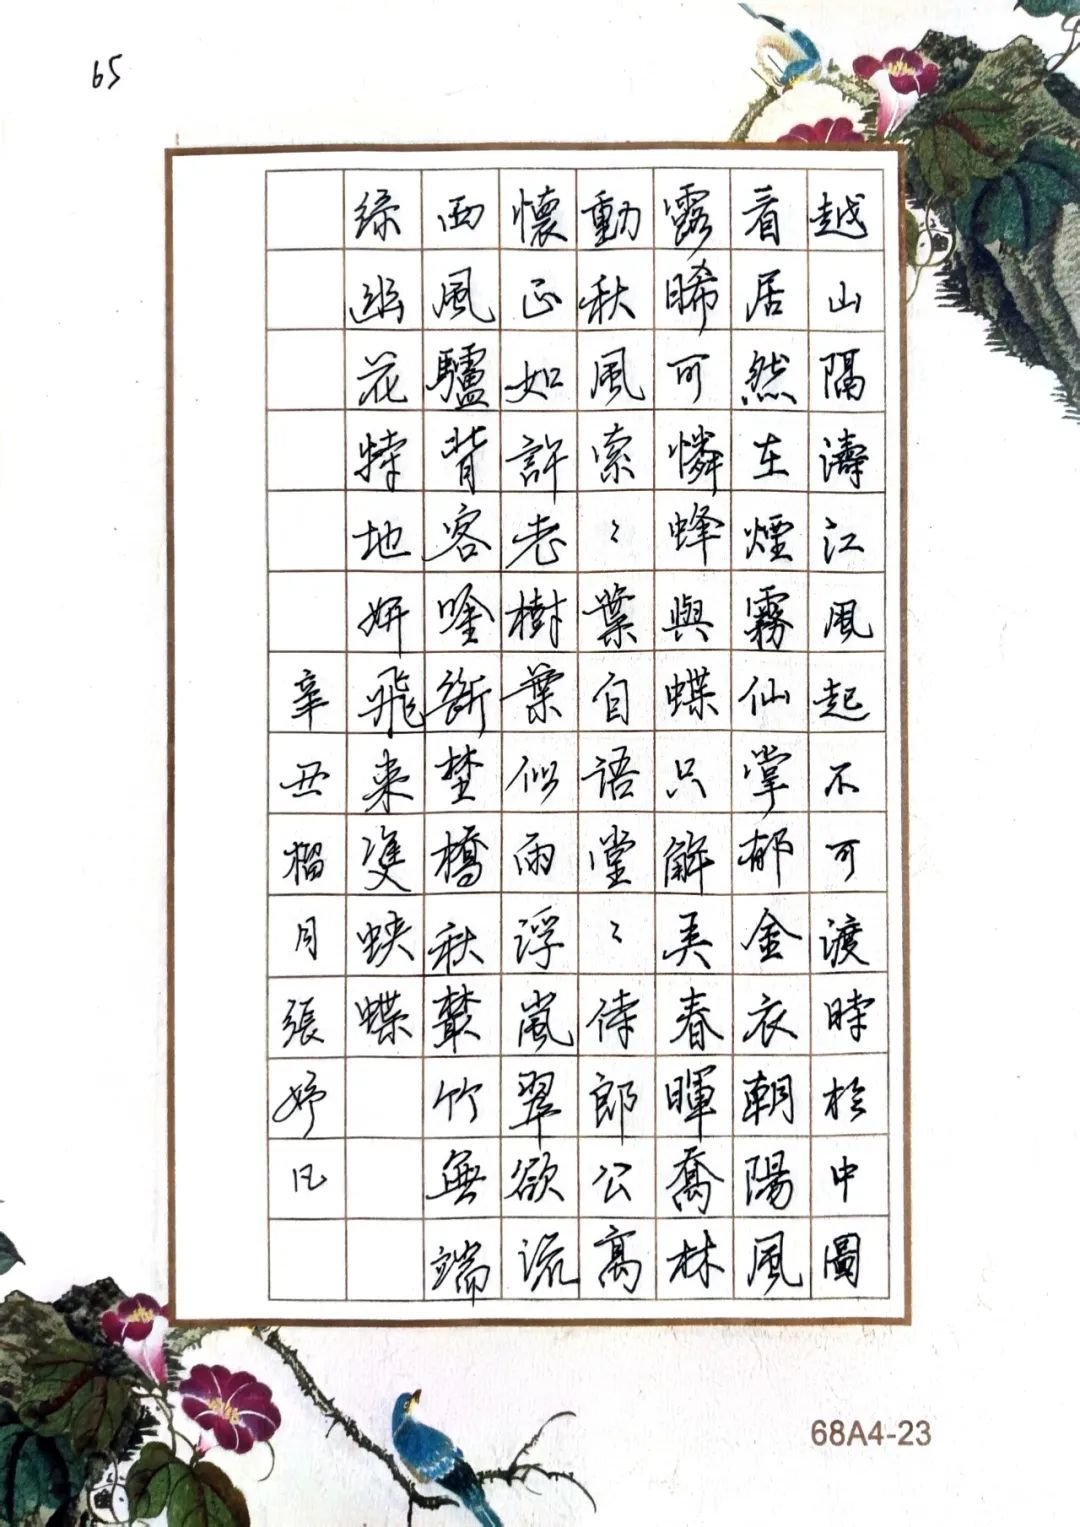 65
越山隔濤江風起不可渡時於中圖
看居然在煙霧仙掌郁金衣朝陽風
露晞可憐蜂與蝶只解弄春暉喬林
動秋風索〻葉自語堂〻侍郎公高
懷正如許老樹葉似雨浮嵐翠欲流
西風驢背客吟斷埜橋秋叢竹無端
綠幽花特地妍飛來雙蛺蝶
辛丑榴月張妤凡
68A4-23